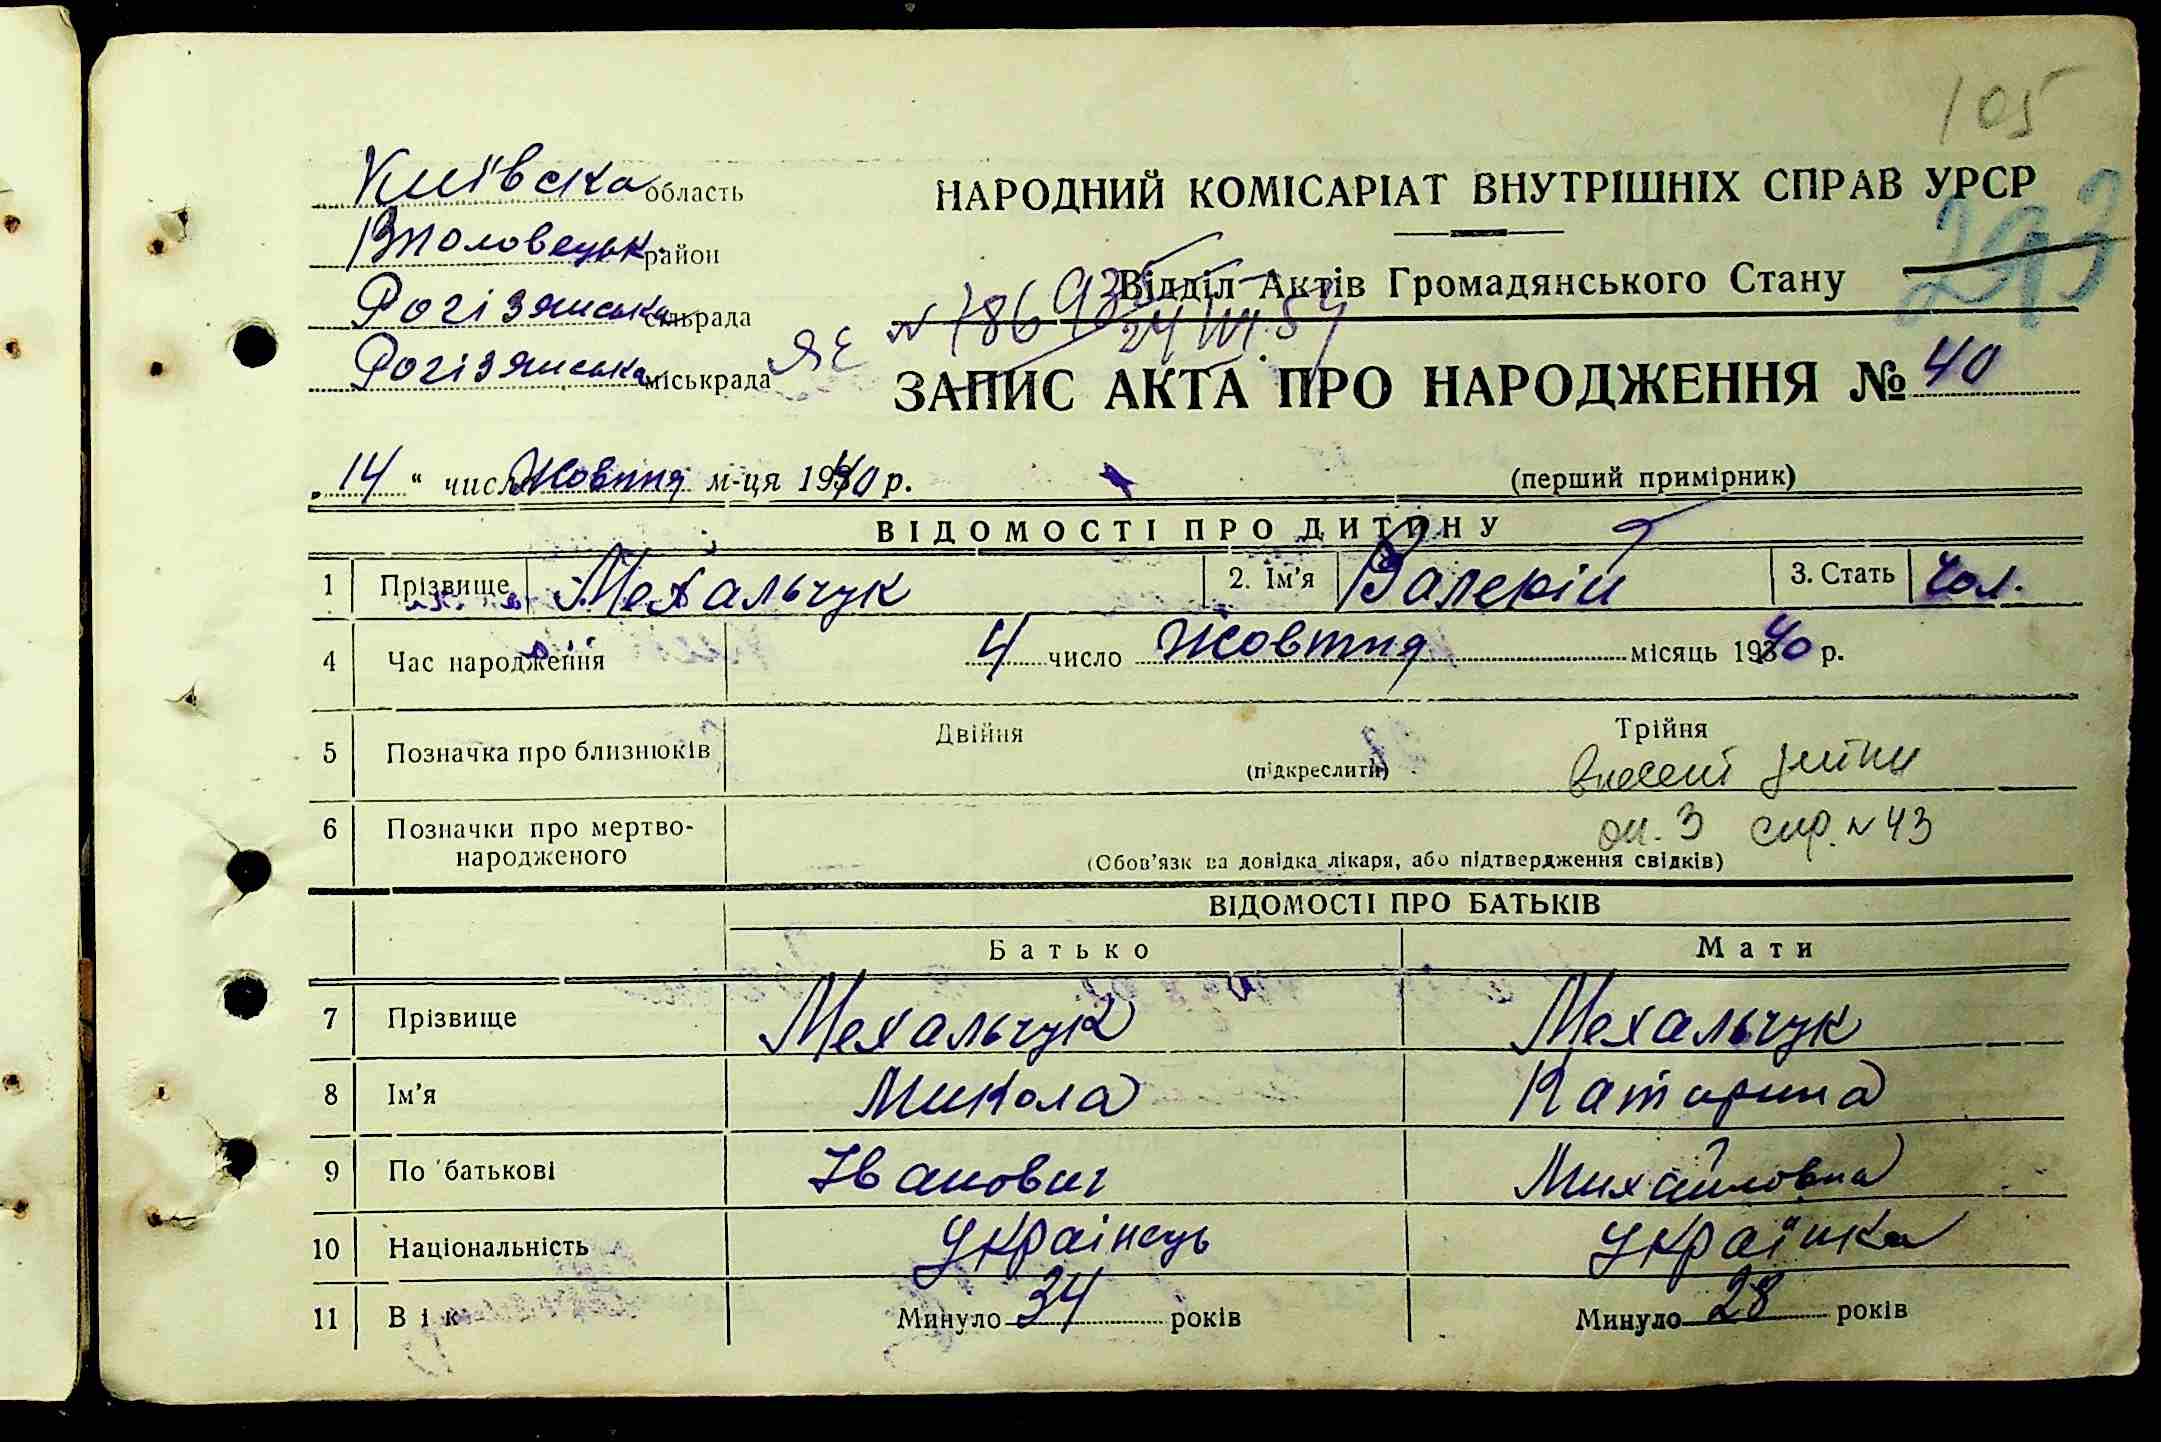 105
Київська область
район
сільрада
міськрада
НАРОДНИЙ КОМІСАРІАТ ВНУТРІШНІХ СПРАВ УРСР
293
Відділ Актів Громадянського Стану
N 786
ЗАПИС АКТА ПРО НАРОДЖЕННЯ № 40
„14“ числа Жовтня м-ця 1940 р.
(перший примірник)
ВІДОМОСТІ ПРО ДИТИНУ
1 Прізвище Мехальчук 2. Ім'я Валерій 3. Стать Чол.
4 Час народження 4 число Жовтня місяць 1940 р.
5 Позначка про близнюків Двійня (підкреслити) Трійня
внесені зміни
6 Позначки про мертвонародженого
оп. 3 спр. N 43
(Обов'язкова довідка лікаря, або підтвердження свідків)
ВІДОМОСТІ ПРО БАТЬКІВ
Батько Мати
7 Прізвище Мехальчук Мехальчук
8 Ім'я Микола Катирина
9 По батькові Іванович Михайловна
10 Національність Українець Українка
11 Вік Минуло 34 років Минуло 28 років